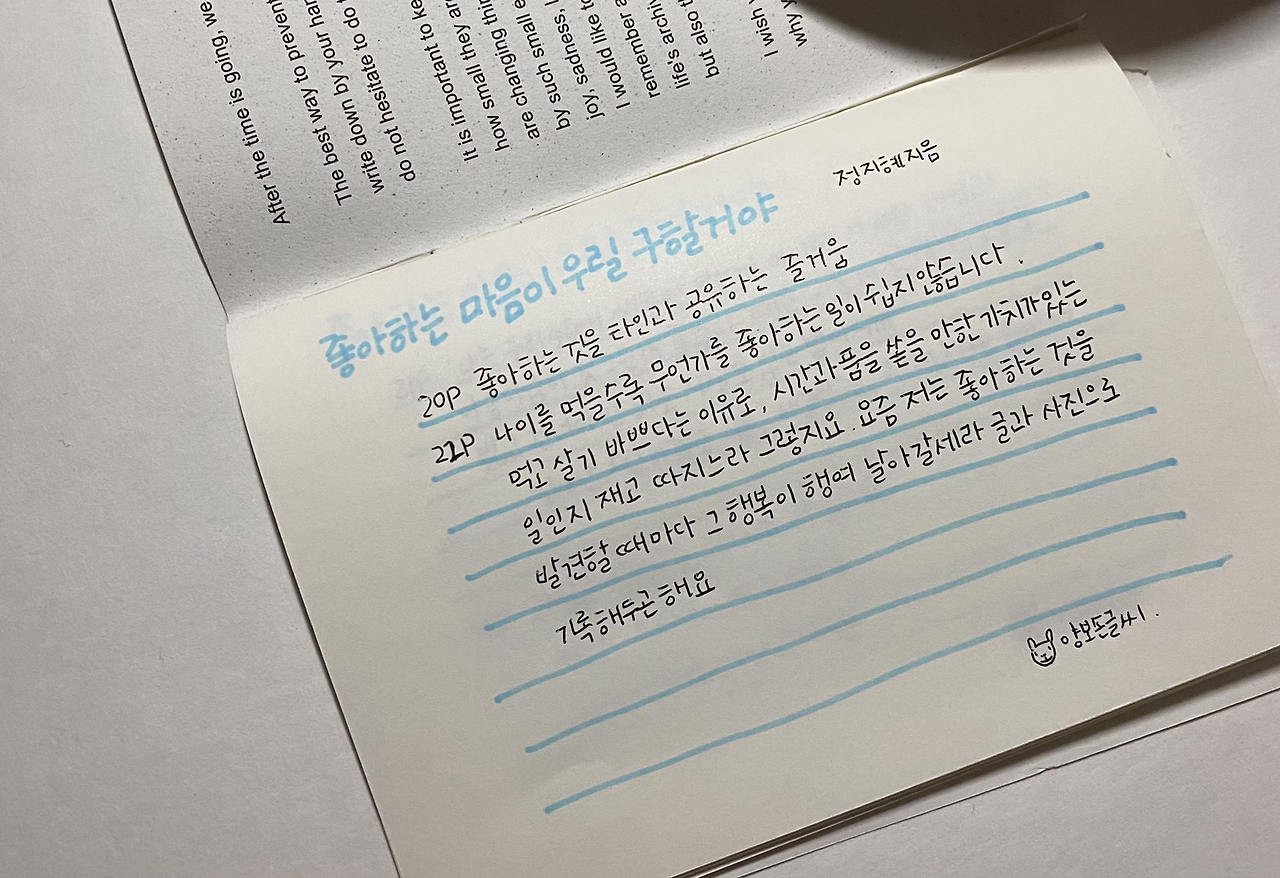 After the time is going, we
The best way to prevent
write down by your han
do not hesitate to do t
It is important to ke
how small they ar
are changing thin
by such small e
joy, sadness, l
I would like to
remember a
life's archiv
but also th
I wish y
why y
좋아하는 마음이 우릴 구할거야
정지혜지음
20P 좋아하는 것을 타인과 공유하는 즐거움
22P 나이를 먹을수록 무언가를 좋아하는 일이 쉽지 않습니다.
먹고 살기 바쁘다는 이유로, 시간과 품을 쏟을 만한 가치가 있는
일인지 재고 따지느라 그렇지요. 요즘 저는 좋아하는 것을
발견할 때마다 그 행복이 행여 날아갈세라 글과 사진으로
기록해두곤 해요
양보돈글씨.